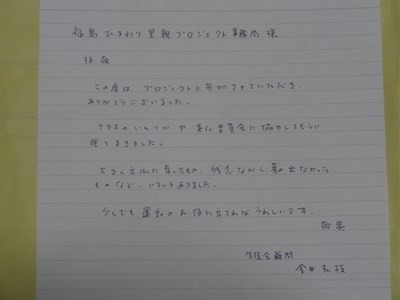 福島ひまわり里親プロジェクト事務局 様
拝啓
この度は プロジェクトに参加させていただき、
ありがとうございました。
クラスのいくつか や 美化委員会に協力してもらい
育てきました。
大きく立派に育ったもの、残念ながら芽の出なかった
ものなど、いろいろありました。
少しでも 運動のお役に立てればうれしいです。
敬具
生徒会顧問